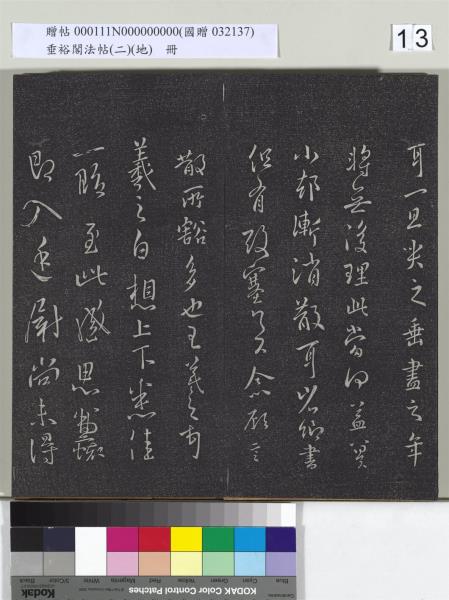 贈帖 000111N000000000(國贈 032137)
垂裕閣法帖(二)(地) 冊
13
耳一旦哭之垂盡之年
將無復理此當何益冀
小都漸消散耳省卿書
但有酸塞足下念顧言
散所豁多也王羲之頓
羲之白想上下悉佳
一順至此感思
即入慰尚未得
Blue
Cyan
Green
Yellow
Red
Magenta
White
3/Color
Black
KODAK Color Control Patches
Kodak